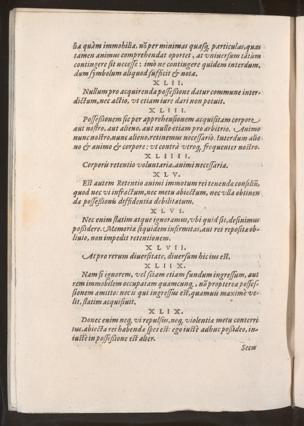 lia quàm immobilia. nõ per minimas quasq; particulas, quas
tamen animus comprehendat oportet, at vniuersum tātùm
contingere sit necesse: imò ne contingere quidem interdum,
dum symbolum aliquod sufficit & nota.
XLII.
Nullum pro acquirenda possessione datur commune inter-
dictum, nec actio, vt etiam iure dari non potuit.
XLIII.
Possessionem sic per apprehensionem acquisitam corpore
aut nostro, aut alieno, aut nullo etiam pro arbitrio. Animo
nunc nostro, nunc alieno, retinemus necessariò. Interdum alie-
no & animo & corpore: vt contrà vtroq; frequenter nostro.
XLIIII.
Corporis retentio voluntaria, animi necessaria.
XLV.
Est autem Retentio animi immotum rei tenendæ consiliũ,
quod nec vi infractum, nec metu abiectum, nec villa obtinen-
dæ possessionis diffidentia debilitatum.
XLVI.
Nec enim statim atque ignoramus, vbi quid sit, desinimus
possidere. Memoriæ siquidem infirmitas, aut rei repositæ ob-
liuio, non impedit retentionem.
XLVII.
At pro rerum diuersitate, diuersum hic ius est.
XLIIX.
Nam si ignorem, vel sciam etiam fundum ingressum, aut
rem immobilem occupatam quamcunq; , nõ propterea posses-
sionem amitto: nec is qui ingressus est, quamuis maximè ve-
lit, statim acquisiuit.
XLIX.
Donec enim neq; vi repulsus, neq; violentiæ metu conterri
tus, abiecta rei habendæ spes est: ego iustè adhuc possideo, in-
iustè in possessione est alter.